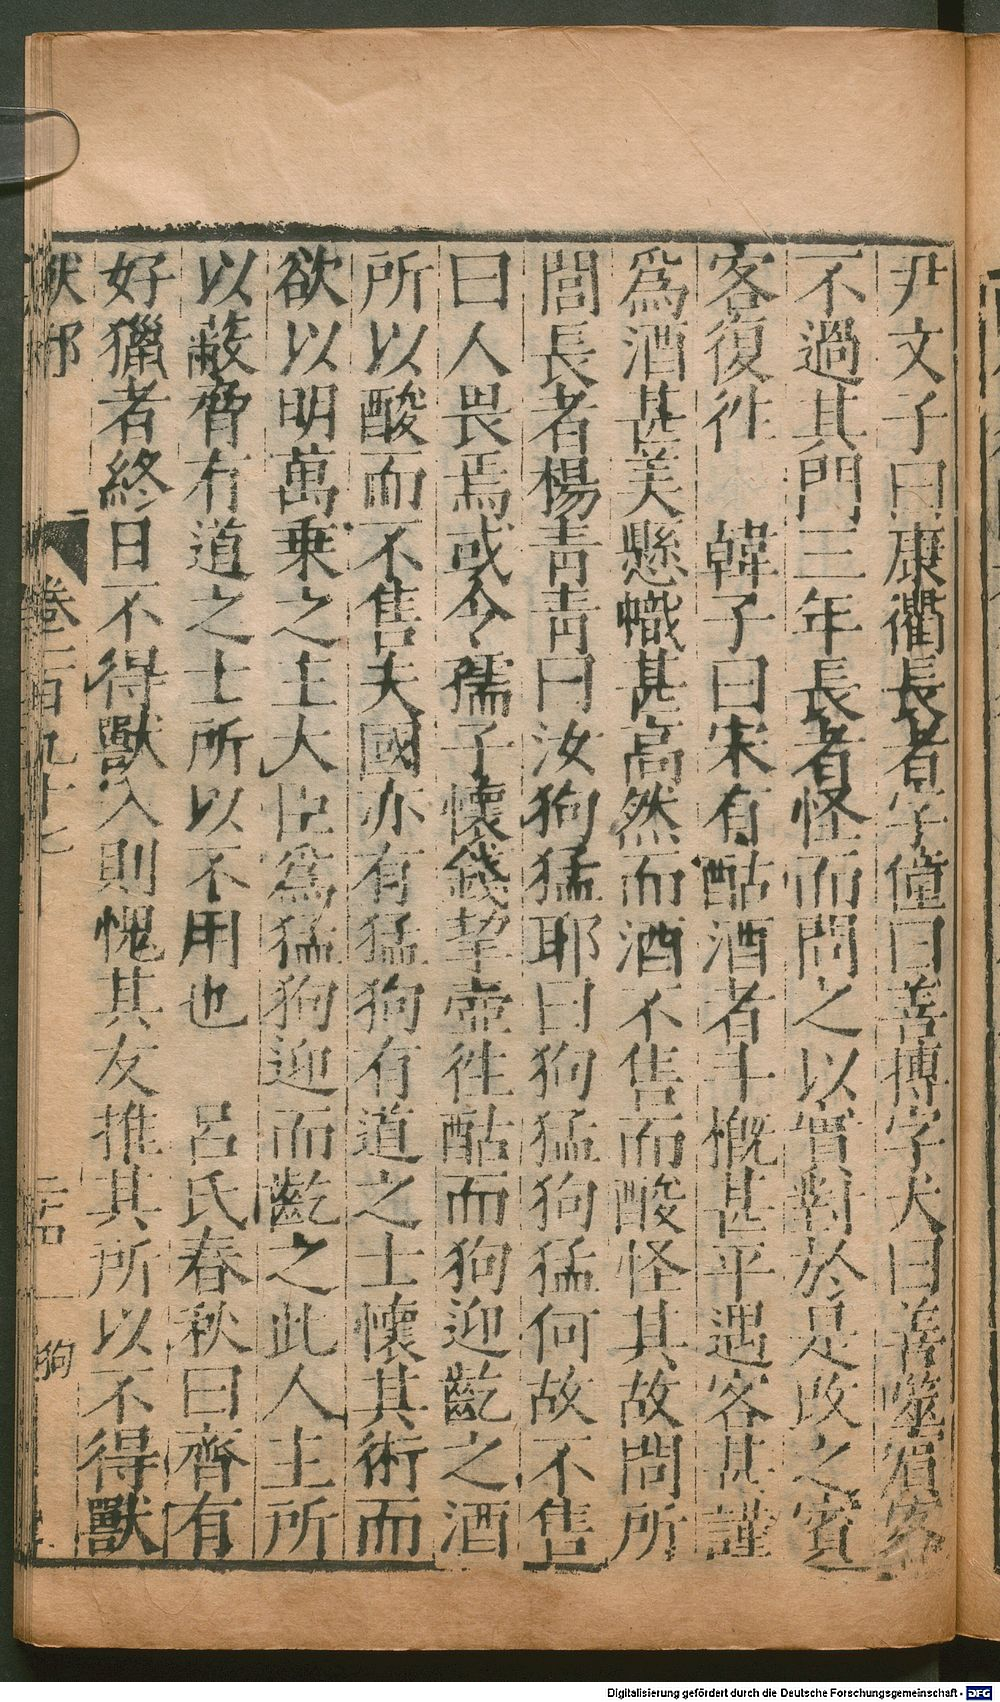 尹文子曰康衢長者字僮曰善搏字犬曰善噬賓客
不過其門三年長者怪而問之以實對於是改之賓
客復徃　韓子曰宋有酤酒者斗概甚平遇客甚謹
為酒甚美懸幟甚高然而酒不售而酸怪其故問所
閭長者楊青青曰汝狗猛耶曰狗猛狗猛何故不售
曰人畏焉或令孺子懷錢挈壺徃酤而狗迎齕之酒
所以酸而不售夫國亦有猛狗有道之士懷其術而
欲以明萬乘之主大臣為猛狗迎而齕之此人主所
以蔽脅有道之士所以不用也　呂氏春秋曰齊有
好獵者終日不得獸入則愧其友推其所以不得獸
獸部　卷一百九十七　狗
Digitalisierung gefördert durch die Deutsche Forschungsgemeinschaft - DFG